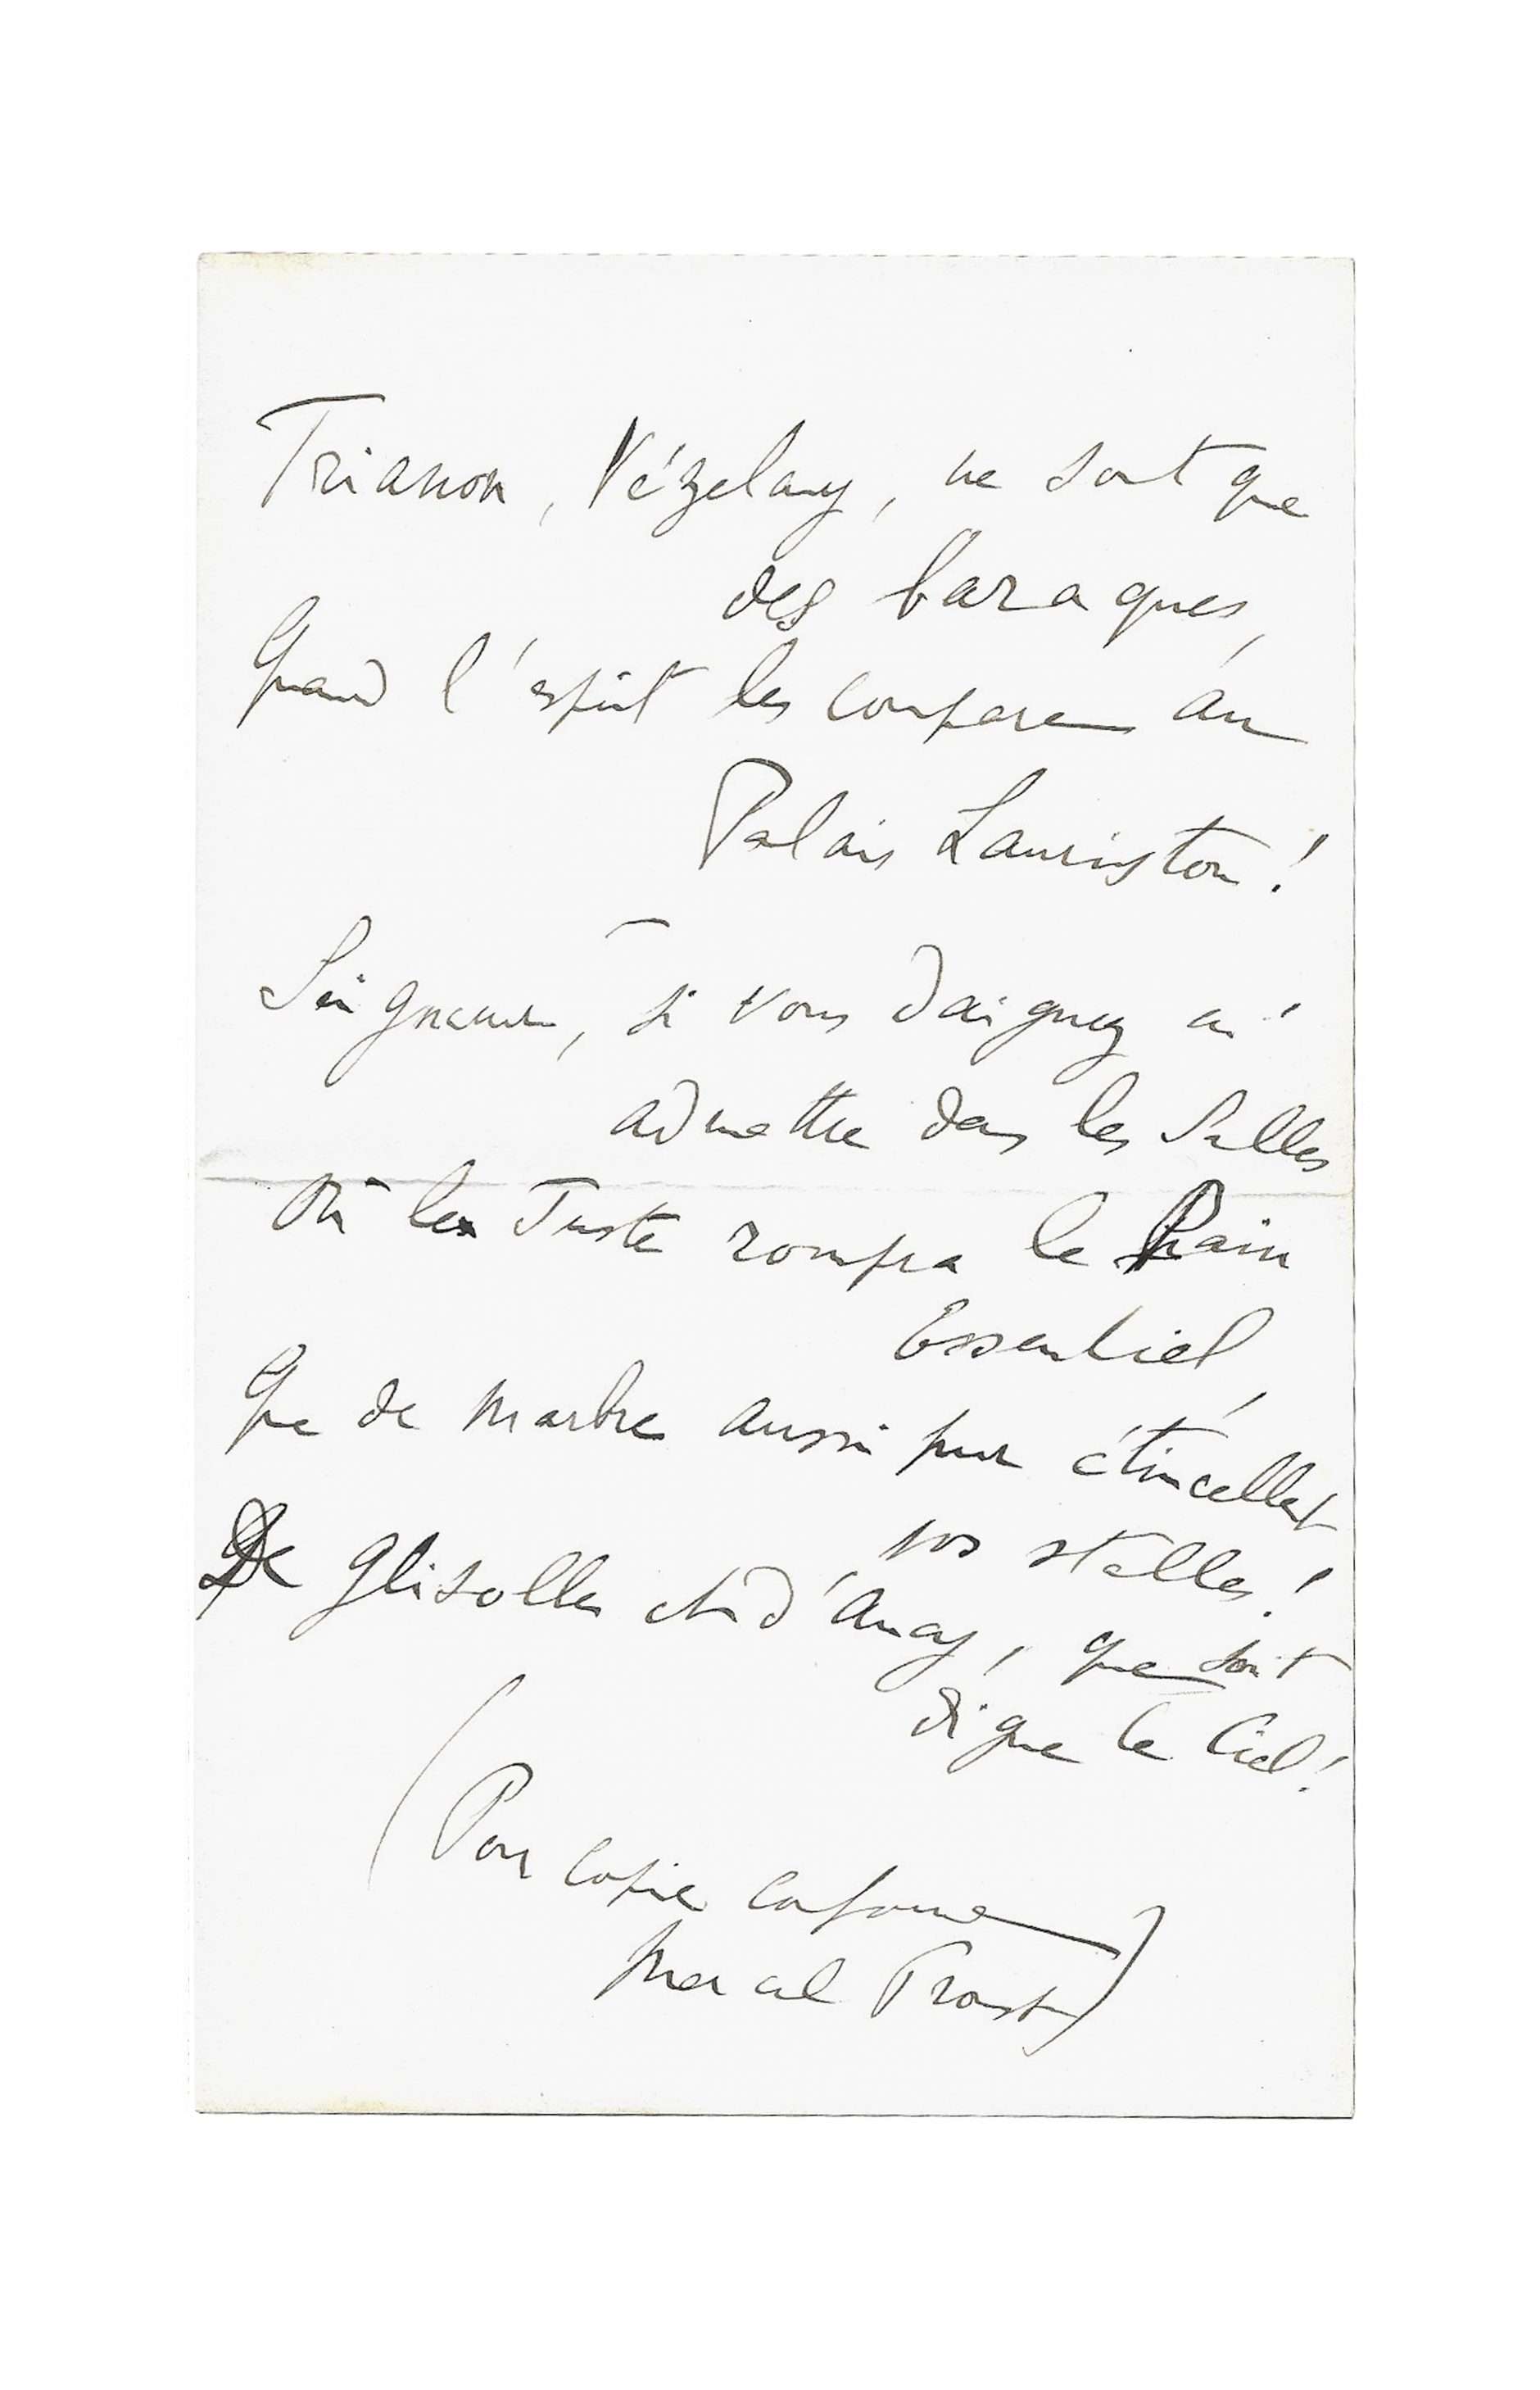 Trianon, Vézelay, ne sont que
des baraques,
Quand l'esprit les compare au
Palais Lauriston!
Seigneur, si vous daignez m'
admettre dans les Salles
Où le Juste rompra le Pain
Essentiel,
Que de marbre aussi pur étincellent
vos stalles!
De Glisolles et d'Ancy, que soit
digne le Ciel!
(Pour copie conforme
Marcel Proust)